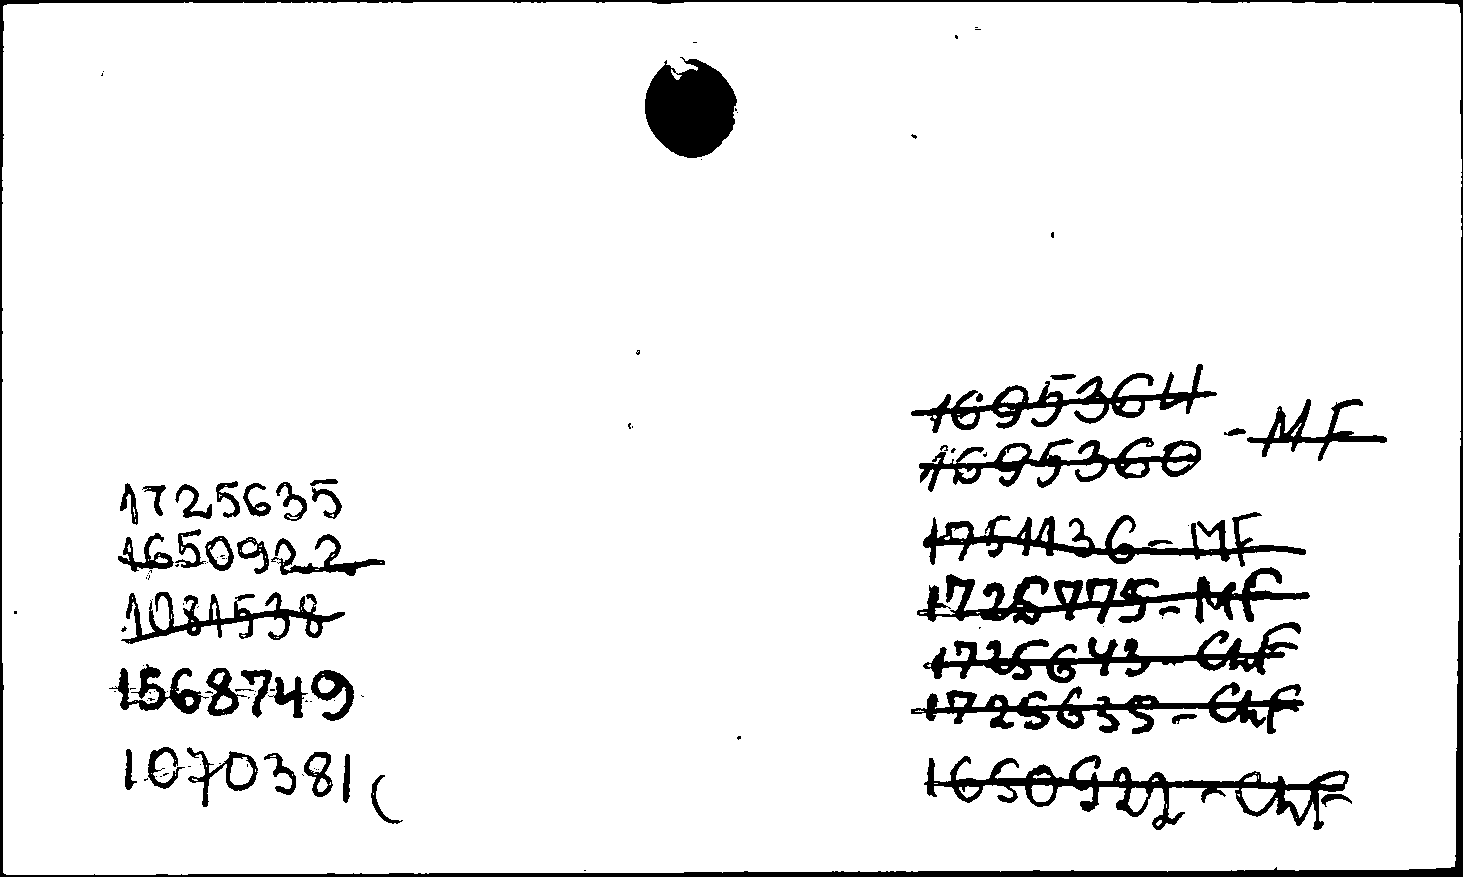 1725635
1650922
1081538
1568749
1070381(
1695364
1695360 - MF
1751136 - MF
1725775 - MF
1725643 - ChF
1725635 - ChF
1650922 - ChF